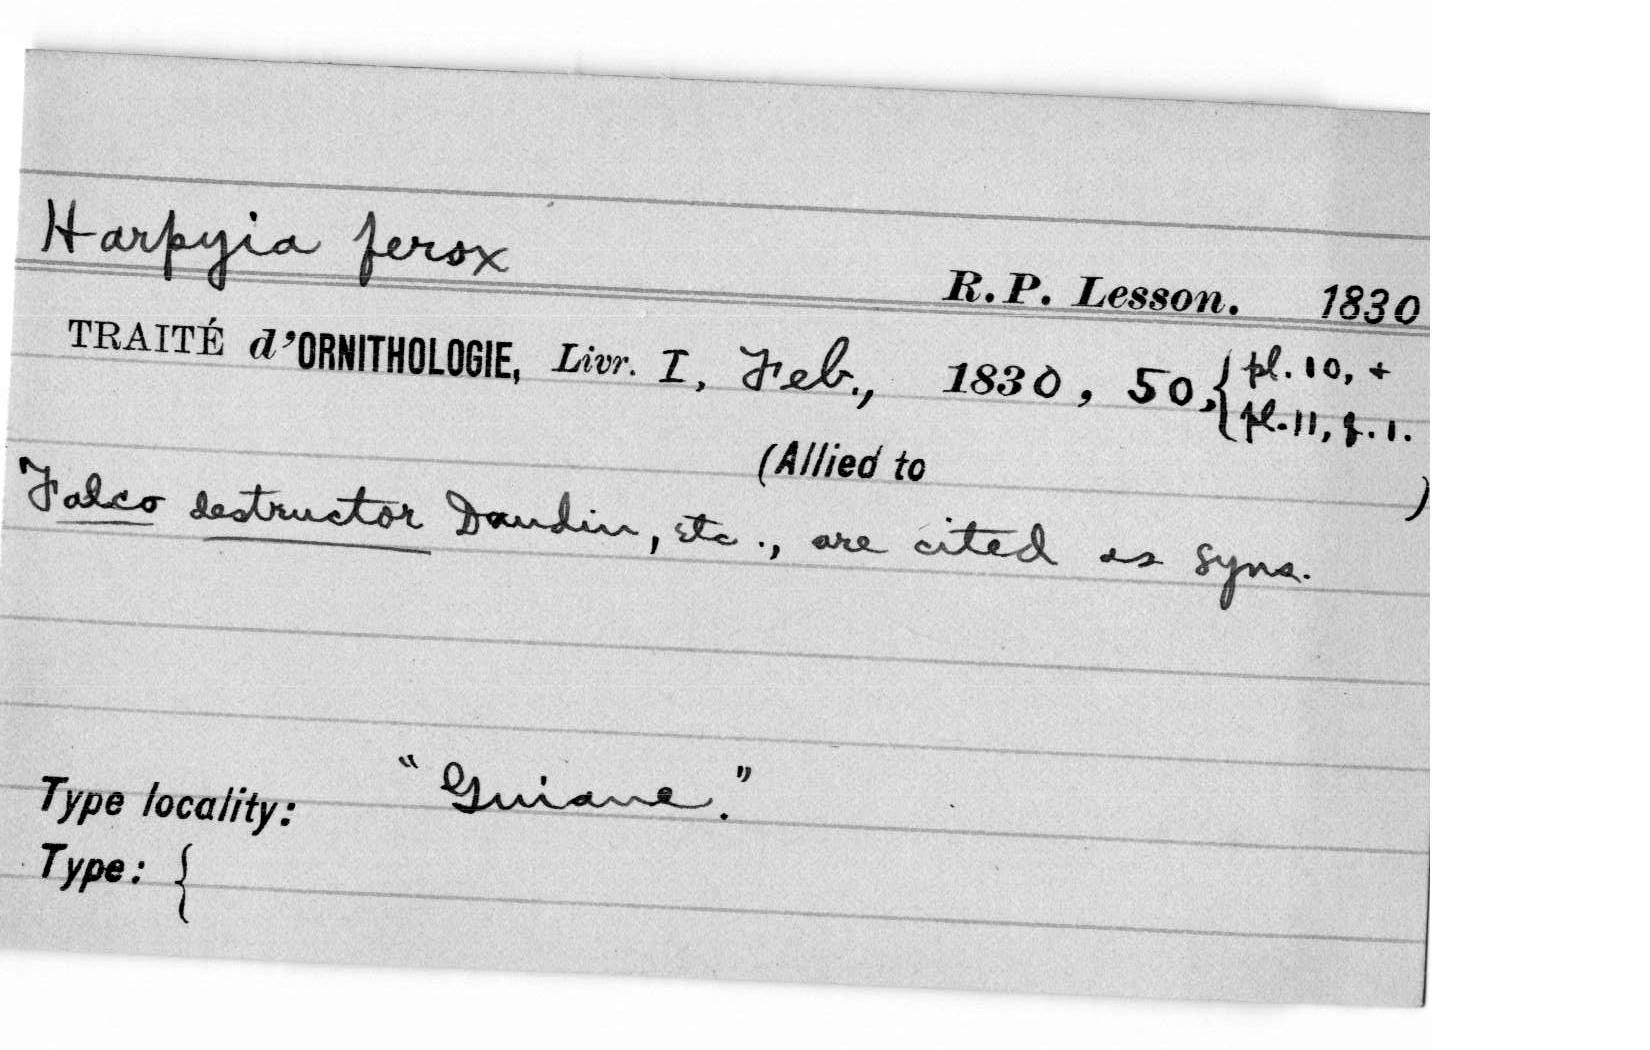 Harpyia ferox
R. P. Lesson. 1830
TRAITÉ d'ORNITHOLOGIE, Livr. I, Feb., 1830, 50, { pl. 10, +
pl. 11, f. 1.
(Allied to )
Falco destructor Daudin, etc., are cited as syns.
Type locality: "Guiane."
Type: {